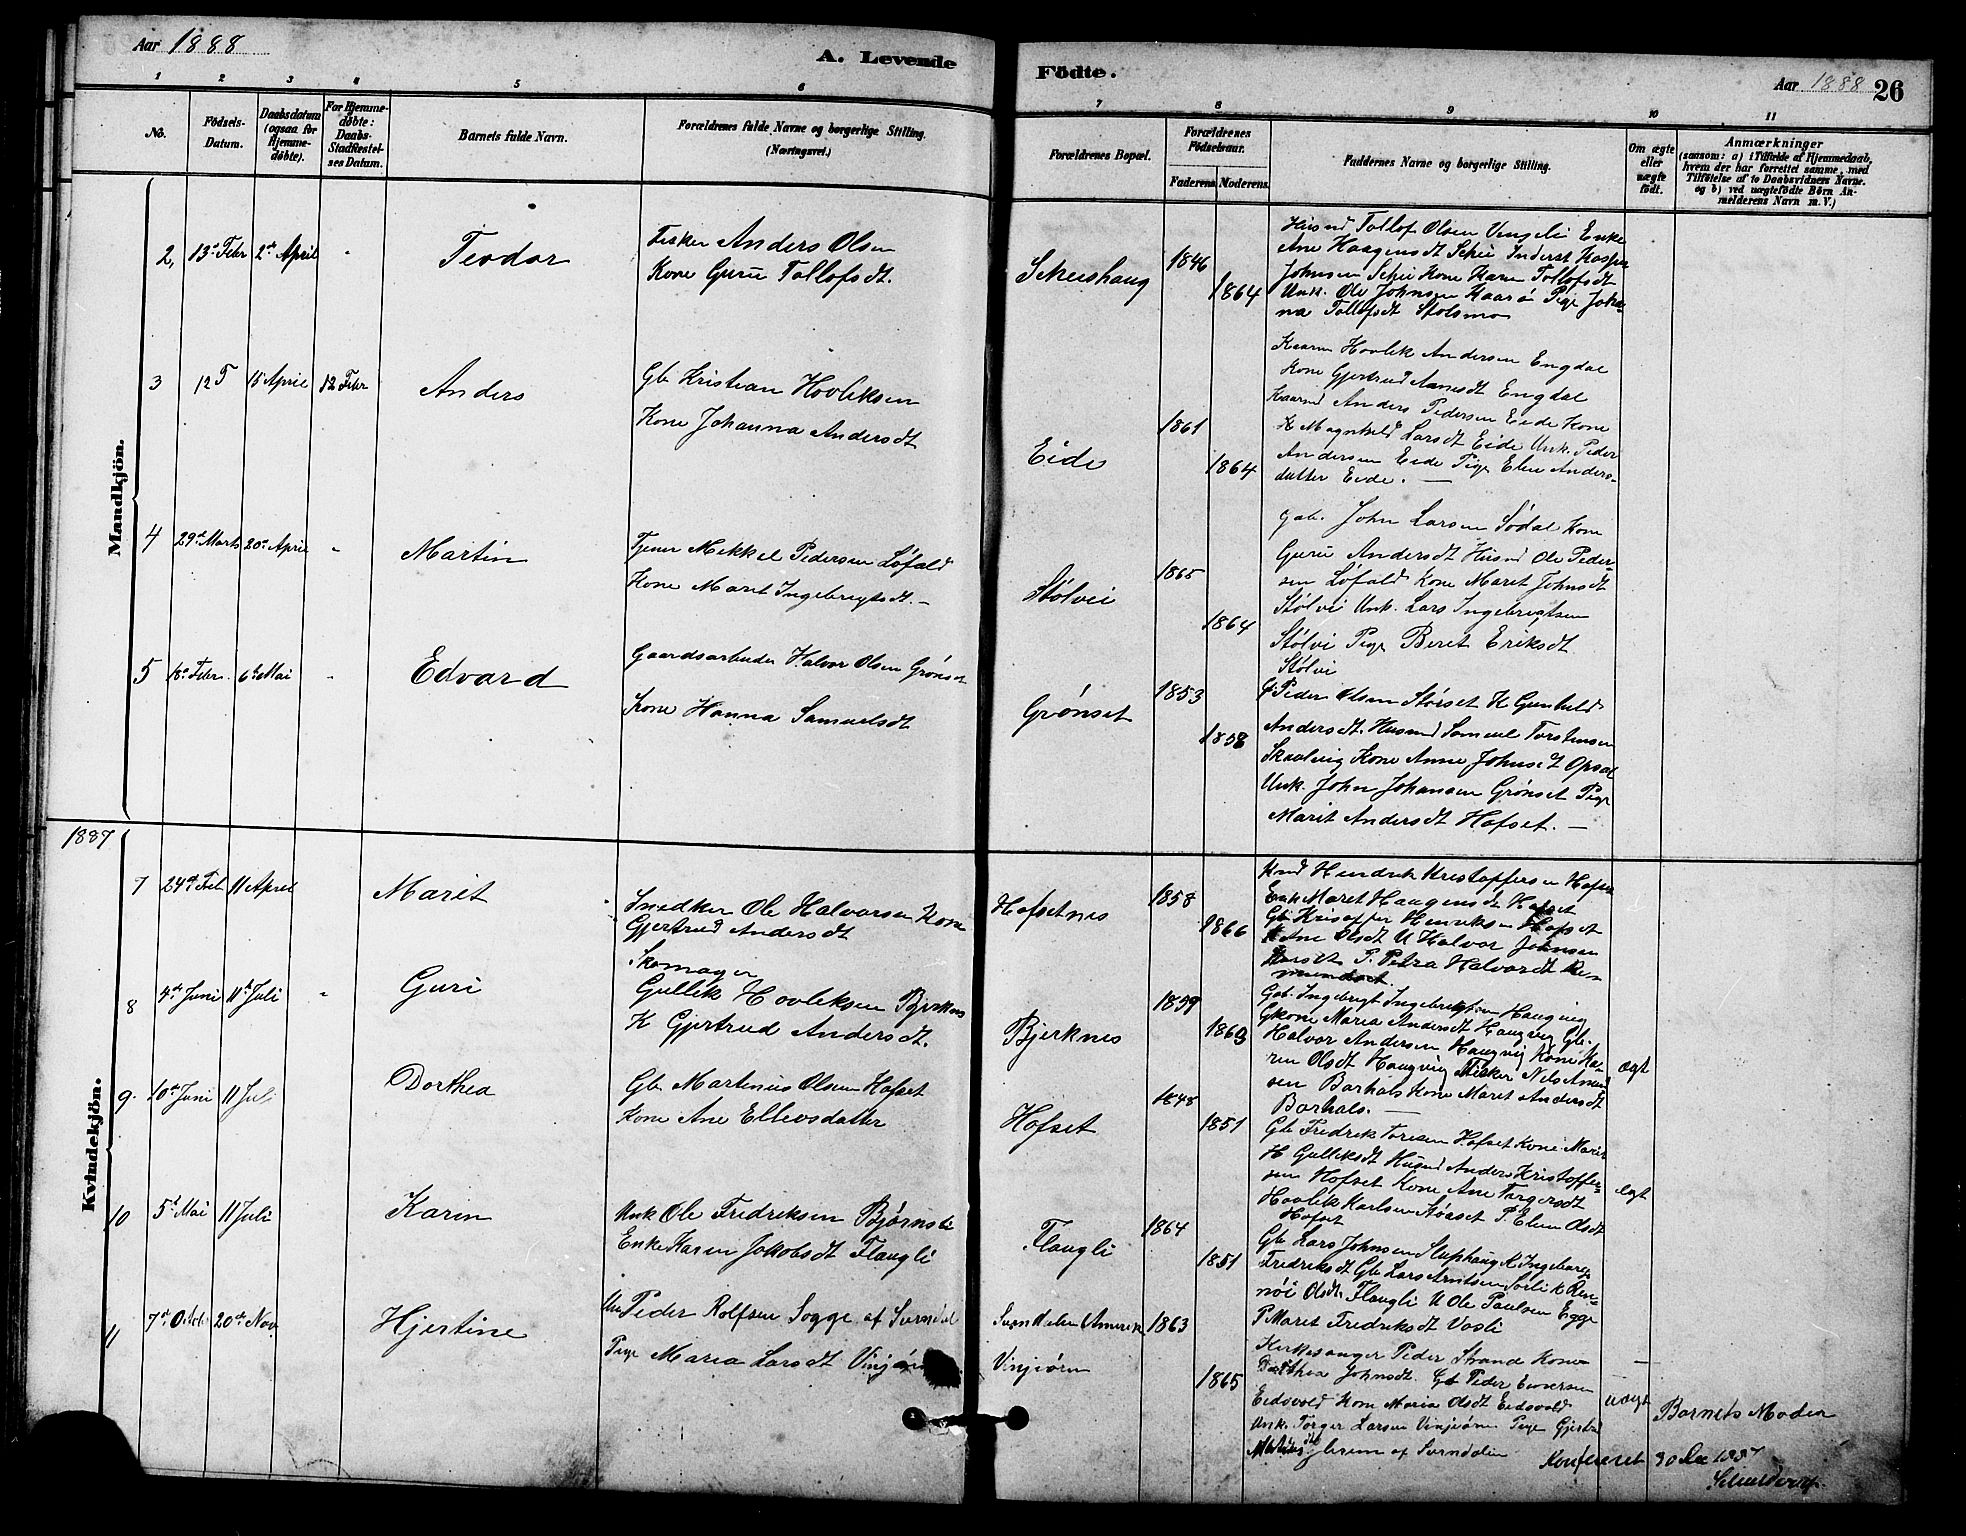 Aar 1888
A. Levende
Födte.
Aar 1888
26
1 2 3 4 5 6 7 8 9 10 11
No.
Födsels-
Datum.
Daabsdatum
(ogsaa for
Hjemme-
döbte).
For Hjemme-
döbte:
Daabs-
Stadfæstel-
ses Datum.
Barnets fulde Navn.
Forældrenes fulde Navne og borgerlige Stilling.
(Næringsvei.)
Forældrenes Bopæl.
Forældrenes
Födselsaar.
Faderens. Moderens.
Faddernes Navne og borgerlige Stilling.
Om ægte
eller
uægte
födt.
Anmærkninger
(saasom: a) i Tilfælde af Hjemmedaab,
hvem der har forrettet samme, med
Tilföielse af to Daabsvidners Navne.
og b) ved uægtefödte Börn An-
melderens Navn m. V.)
Mandkjön.
2, 13de Febr 2den April
Teodor
Fisker Anders Olsen
Kone Guru Tollofsdt.
1846
1864
Husmd Tollof Olsen Enke
Ane Haagensdt
Johnsen Kone Karen Tollofsdt
Unk. Ole Johnsen Pige Joha-
na Tollofsdt Stolsmo
3 12 F 15 April 12 Febr
Anders
Gb Kristian Hovliksen
Kone Johanna Andersdt
Eide
1861
1864
Kaarm Hovlik Andersen Engdal
Kone Gjertrud Engdal
Kaarmd Anders Pedersen Eide Kone
Larsdt Eide Unk. Peder
Andersen Eide Pige Elen Anders-
datter Eide. —
4 29de Marts 20de April
Martin
Tjener Mikkel Pedersen Løfald
Kone Marit Ingebrigtsdt. —
Stølvei
1865
1864
gab. John Larsen Sødal Kone
Guru Andersdt Husmd Ole Peder-
sen Løfald Kone Marit Johnsdt
Stølvei Unk. Lars Ingebrigtsen
Stølvi Pige Beret Eriksdt
Stølvi
5 Febr. 6te Mai
Edvard
Gaardsarbeider Halvor Olsen Grønset
Kone Hanna Samuelsdt
Grønset
1853
1858
Peder Olsen Størset K Gunhild
Andersdt. Husmd Samuel Torstensen
Skaalvig Kone Anne Johnsdt Opsal
Unk. John Johansen Grønset Pige
Marit Andersdt Hofset. —
1887
Kvindekjön.
7 24de Febr 11 April
Marit
Ole Halvorsen Kone
Gjertrud Andersdt
Hofsetnes
1858
1866
Hendrik Kristoffersen Hofset
Enke Maret Haagensdt Hofset
Gb Kristoffer Henriksen Hofset
K Ane Olsdt U Halvor Johnsen
P. Petra Halvorsdt
8 4de Juni 11te Juli
Guri
Skomager
Gullik Hovleksen Bjerknes
K Gjertrud Andersdt.
Bjerknes
1859
1863
Gab. Ingebrigt Ingebrigtsen Haugvig
Gkone Maria Andersdt Haugvig Gb.
Halvor Andersen Haugvig Kone Ka-
ren Olsdt Haugvig Fisker Nils
sen Barhals Kone Maret Andersdt
Barhals. —
ægt
9. 10de Juni 11 Juli
Dorthea
Gb Martinus Olsen Hofset
Kone Ane Ellevsdatter
Hofset
1848
1851
Gb Fredrik Toresen Hofset Kone Marit
H Gulleksdt Husmd Anders Kristoffer-
sen Hofset Kone Ane Torgersdt
Hovlik Karlsen P. Elen Olsdt
Hofset
ægt
10 5te Mai 11 Juli
Karen
Unk Ole Fredriksen Bjørnsli
Enke Karen Jakobsdt Flaugli
Flaugli
1864
1851
Gb Lars Johnsen K Ingeborg
Fredriksdt Gb Lars Arntsen K Ren-
nøi Olsdt. Flaugli U Ole Paulsen Engge
P Maret Fredriksdt Vasli
—
11 7de Octobr 20de Nov.
Hjertine
Unk Peder Rolfsen Sogge af Surndal
Pige Maria Larsdt
Surndalen (Amerik
Vinjeøren
1863
1865
Kirkesanger Peder Strand Kone
Dorthea Johnsdt. Gb Peder Iversen
Eidsvold Kone Maria Olsdt Eidsvold
Unk. Torger Larsen Vinjeøren Pige
af Surndalen
uægt
Barnets Moder
Konfereret 30 Dec 1887